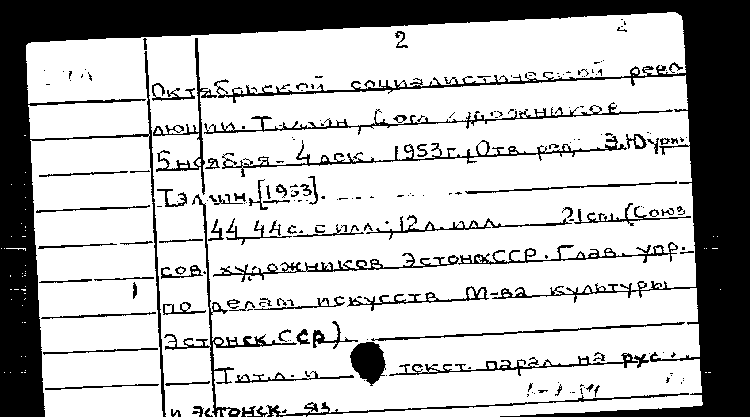 2 2
Октябрьской социалистической рево-
люции. Таллин, Дом художников
5 ноября - 4 дек. 1953 г. [Отв. ред. Э. Юрн.
Таллин, [1953].
44, 44 с. с илл.; 12 л. илл. 21 см. (Союз
сов. художников Эстонск. ССР. Глав. упр.
по делам искусств М-ва культуры
Эстонск. ССР).
Тит. л. и текст. парал. на рус.
и эстонск. яз.